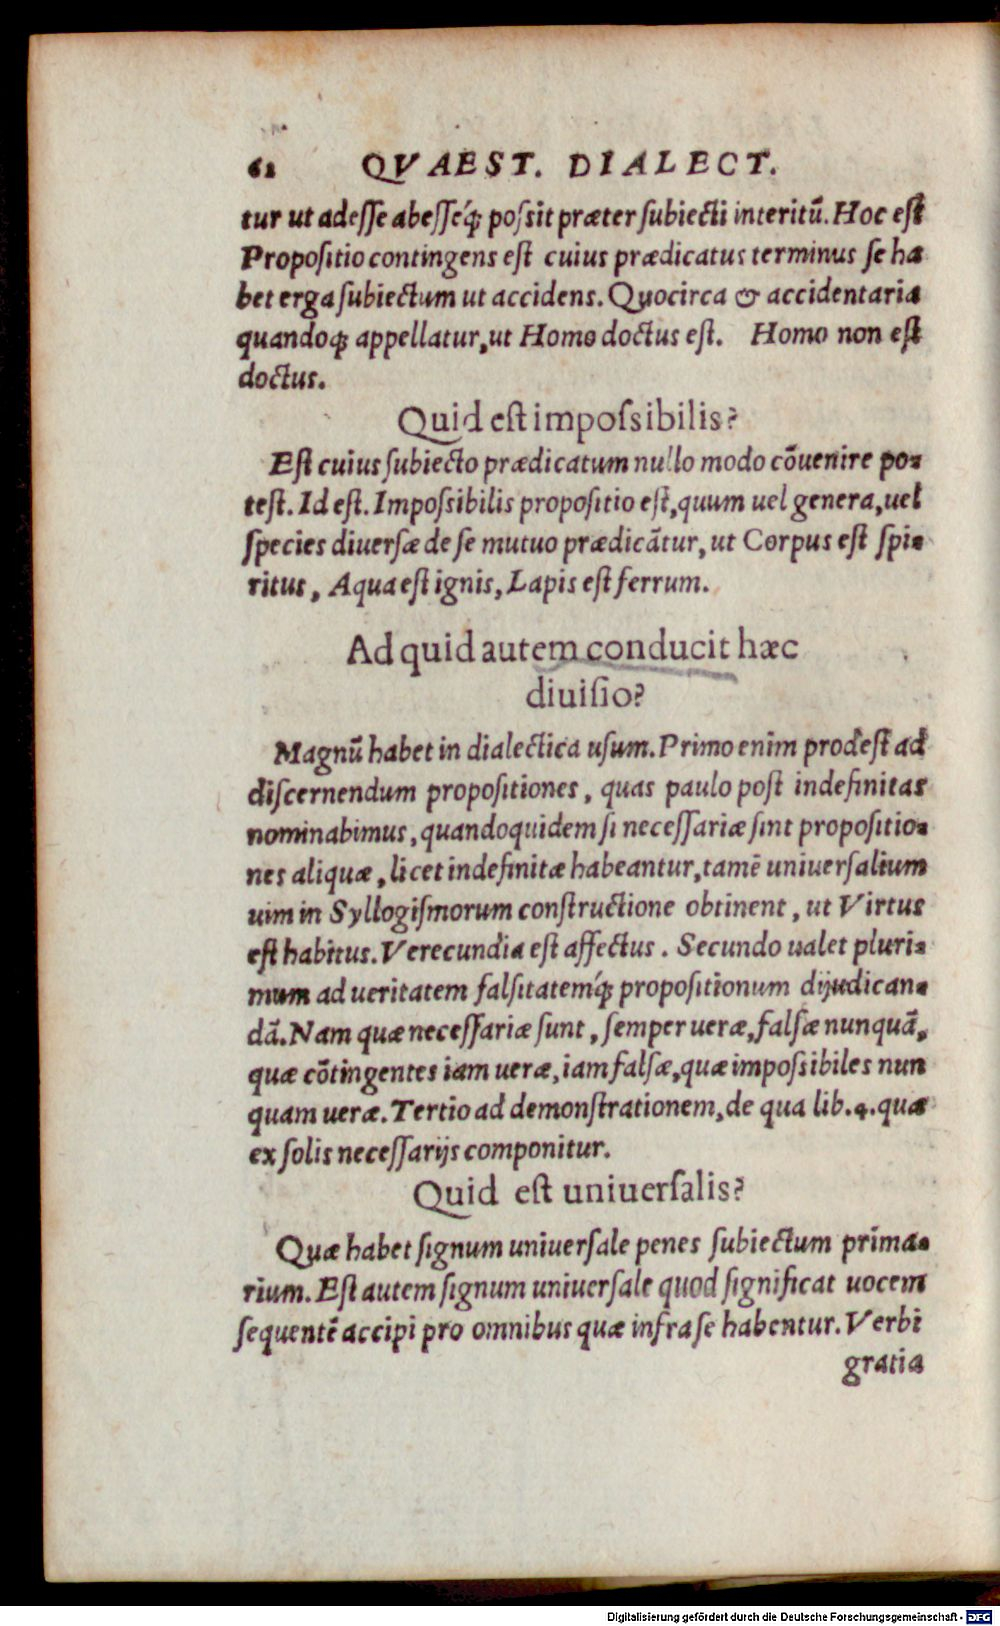 62 QVAEST. DIALECT.
tur ut adeſſe abeſſeq́; poſsit præter ſubiecti interitũ. Hoc eſt
Propoſitio contingens eſt cuius prædicatus terminus ſe ha
bet erga ſubiectum ut accidens. Quocirca & accidentaria
quandoq; appellatur, ut Homo doctus eſt. Homo non eſt
doctus.
Quid eſt impoſsibilis?
Eſt cuius ſubiecto prædicatum nullo modo cõuenire po-
teſt. Id eſt. Impoſsibilis propoſitio eſt, quum uel genera, uel
ſpecies diuerſæ de ſe mutuo prædicãtur, ut Corpus eſt ſpi-
ritus, Aqua eſt ignis, Lapis eſt ferrum.
Ad quid autem conducit hæc
diuiſio?
Magnũ habet in dialectica uſum. Primo enim prodeſt ad
diſcernendum propoſitiones, quas paulo poſt indefinitas
nominabimus, quandoquidem ſi neceſſariæ ſint propoſitio-
nes aliquæ, licet indefinitæ habeantur, tamẽ uniuerſalium
uim in Syllogiſmorum conſtructione obtinent, ut Virtus
eſt habitus. Verecundia eſt affectus. Secundo ualet pluri-
mum ad ueritatem falſitatemq́; propoſitionum dijudican-
dã. Nam quæ neceſſariæ ſunt, ſemper ueræ, falſæ nunquã,
quæ cõtingentes iam ueræ, iam falſæ, quæ impoſsibiles nun
quam ueræ. Tertio ad demonſtrationem, de qua lib. 4. quæ
ex ſolis neceſſarijs componitur.
Quid eſt uniuerſalis?
Quæ habet ſignum uniuerſale penes ſubiectum prima-
rium. Eſt autem ſignum uniuerſale quod ſignificat uocem
ſequentẽ accipi pro omnibus quæ infra ſe habentur. Verbi
gratia
Digitalisierung gefördert durch die Deutsche Forschungsgemeinschaft - DFG